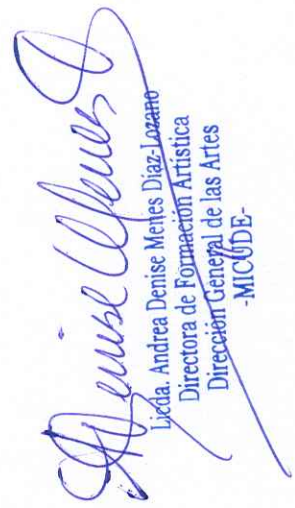 Denise Menes
Licda. Andrea Denise Menes Díaz-Lozano
Directora de Formación Artística
Dirección General de las Artes
-MICUDE-